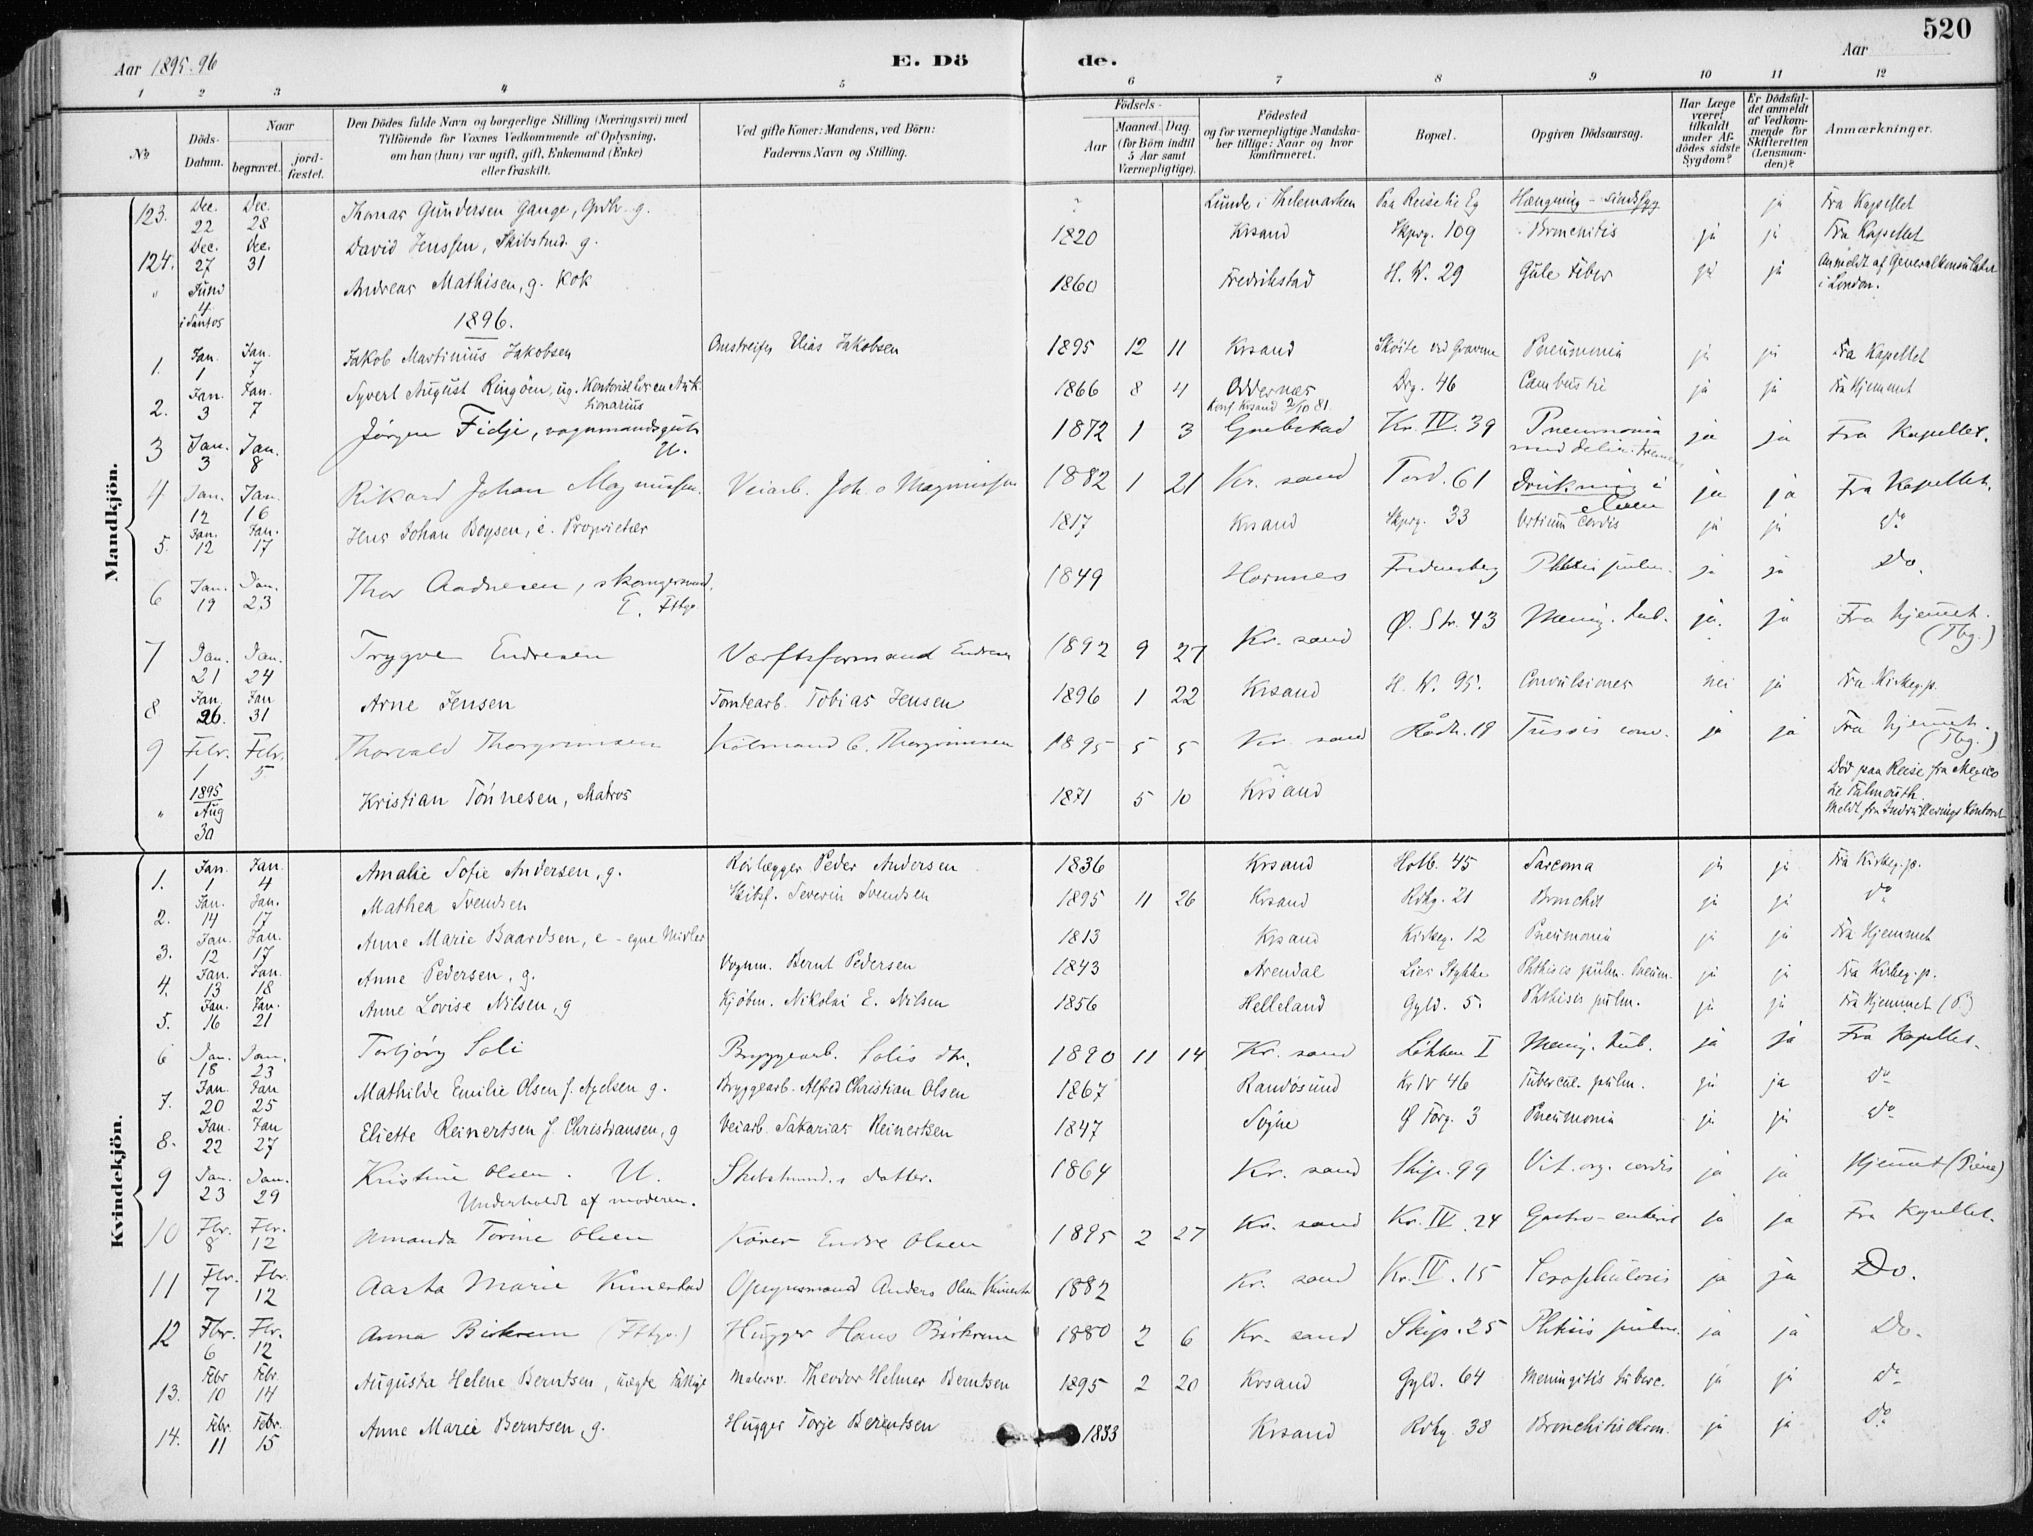 520
Aar 1895-96
E. Dö
de.
Aar
1 2 3 4 5 6 7 8 9 10 11 12
No
Döds-Datum.
Naar
begravet.
jord-fæstet.
Den Dödes fulde Navn og borgerlige Stilling (Næringsvei) med
Tilföiende for Voxnes Vedkommende af Oplysning,
om han (hun) var ugift, gift, Enkemand (Enke)
eller fraskilt.
Ved gifte Koner: Mandens, ved Börn:
Faderens Navn og Stilling.
Födsels-
Aar
Maaned. Dag.
(for Börn indtil 5 Aar samt Værnepligtige).
Födested
og for værnepligtige Mandska-
ber tillige: Naar og hvor
konfirmeret.
Bopæl.
Opgiven Dödsaarsag.
Har Læge været tilkaldt under Af-dödes sidste Sygdom?
Er Dödsfal-det anmeldt af Vedkom-mende for Skifteretten (Lensman-den)?
Anmærkninger.
Mandkjön.
123. Dec. 22 Dec. 28 Thomas Gundersen Gange, g. ? Lunde i Thelemarken Paa Reise til Eg Hængning - Sindssyg ja Fra Kapellet
124. Dec. 27 Dec. 31 David Jenssen, Skibstmd. g. 1820 Krsand Skprg. 109 Bronchitis ja ja Fra Kapellet
" Juni 4 i Santos Andreas Mathisen, g. Kok 1860 Fredrikstad H. W. 29 Gule Feber ja ja Anmeldt af Generalkonsulatet i London.
1896.
1. Jan. 1 Jan. 7 Jakob Martinius Jakobsen Omstreifer Elias Jakobsen 1895 12 11 Krsand Skøite ved Gravene Pneumonia ja ja Fra Kapellet
2. Jan. 3 Jan. 7 Syvert August Ringöen, ug. Kontorist hos en Auktionarius 1866 8 4 Oddernæs Konf. Krsand 2/10 81. Drg. 46 Combustio ja ja Fra Hjemmet
3 Jan. 3 Jan. 8 Jørgen Fidje, vognmandsgut U. 1872 1 3 Kr. IV. 39 Pneumonia med delir. tremens ja ja Fra Kapellet.
4 Jan. 12 Jan. 16 Rikard Johan Magnussen. Veiarb. Joh. Magnussen 1882 1 21 Kr. sand Tord. 61 Drukning i Elven ja ja Fra Kapellet.
5. Jan. 12 Jan. 17 Jens Johan Boysen, e. Proprietær 1817 Krsand Skprg. 33 Vitium cordis ja ja do
6 Jan. 19 Jan. 23 Thor Aadnesen, E. Fttgv. 1849 Hornnes Fredensberg Phtisis pulm. ja ja Do.
7 Jan. 21 Jan. 24 Trygve Endresen Værftsformand Endresen 1892 9 27 Kr. sand Ø. Str. 43 Mening. tub. ja. ja Fra hjemmet. (Tbg.)
8 Jan. 26. Jan 31 Arne Jensen Tomtearb. Tobias Jensen 1896 1 22 Krsand H. W. 95. Convulsioner nei ja Fra Kirkeg.p.
9 Febr. 1 Febr. 5 Thorvald Thorgrimsen Kolmand C. Thorgrimsen 1895 5 5 Kr. sand Rådh. 19 Tussis conv. ja ja Fra hjemmet. (Tbg.)
" 1895 Aug 30 Kristian Tönnesen, Matros 1871 5 10 Krsand Död paa Reise fra Mexico til Falmouth. Meldt fra Indrulleringskontoret
Kvindekjön.
1. Jan. 1 Jan. 4 Amalie Sofie Andersen, g. Rörlægger Peder Andersen 1836 Krsand Holb. 45 Sarcoma ja ja Fra Kirkeg.p.
2. Jan. 14 Jan. 17 Mathea Svendsen Skibsf. Severin Svendsen 1895 11 26 Krsand Rdhg. 21 Bronchit ja ja do
3. Jan. 12 Jan. 17 Anne Marie Baardsen, e - egne Midler 1813 Krsand Kirkeg. 12 Pneumonia ja ja Fra Hjemmet
4. Jan. 13 Jan. 18 Anne Pedersen, g. Vognm. Bernt Pedersen 1843 Arendal Lies Stykke Phthisis pulm. Pneum. ja ja Fra Kirkeg.p.
5. Jan. 16 Jan. 21 Anne Lovise Nilsen, g Kjøbm. Nikolai E. Nilsen 1856 Helleland Gyld. 5. Phthisis pulm. ja ja Fra Hjemmet (P.)
6 Jan. 18 Jan. 23 Torbjörg Soli Bryggearb. Solis dtr. 1890 11 14 Kr. sand Løkken I Mening. tub. ja ja Fra Kapellet.
7. Jan. 20 Jan 25 Mathilde Emilie Olsen f. Apelsen g. Bryggearb. Alfred Christian Olsen 1867 Randösund Kr IV 46 Tubercul. pulm. ja ja do
8. Jan. 22 Jan 27 Eliette Reinertsen f. Christiansen, g Veiarb. Sakarias Reinertsen 1847 Søgne Ø Torg. 3 Pneumonia ja ja do
9 Jan. 23 Jan. 29 Kristine Olsen. U. Underholdt af moderen. Skibstmd.s datter. 1864 Kr. sand Skip. 99 Vit. org. cordis ja ja Hjemmet
10 Fbr. 8 Fbr. 12 Amanda Torine Olsen Kører Endre Olsen 1895 2 27 Kr. sand Kr. IV. 24 Gastro-enterit ja ja Fra Kapellet.
11 Fbr. 7 Fbr. 12 Aasta Marie Kimestad Opsynsmand Anders Olsen Kimestad 1882 Kr. sand Kr. IV. 15 Scrophulosis ja ja Do.
12 Fbr. 6 Fbr. 12 Anna Birkrem (Fttgv.) Hugger Hans Birkrem 1880 2 6 Kr. sand Skip. 25 Phtisis pulm. ja ja Do.
13. Febr 10 Febr. 14 Augusta Helene Berntsen, uægte Fattigl Matersv. Theodor Helmer Berntsen 1895 2 20 Krsand Gyld. 64 Meningitis tuberc. ja ja do
14. Febr. 11 Febr. 15 Anne Marie Berntsen, g. Hugger Torje Berentsen 1833 Krsand Rdhg. 38 Bronchitis chron. ja ja do